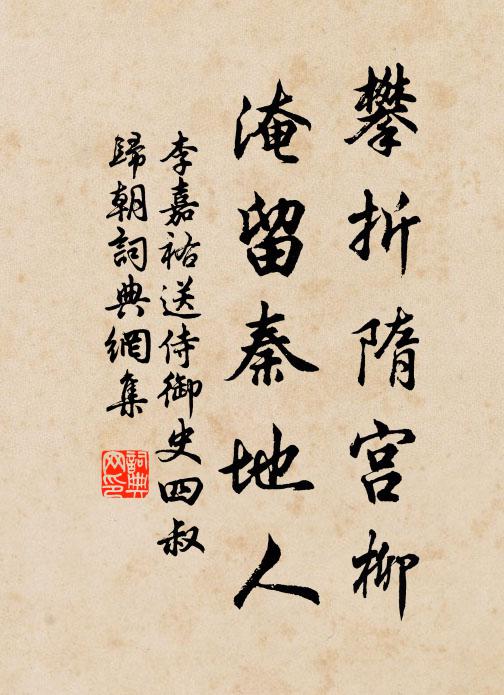 攀折隋宫柳
淹留秦地人
李嘉祐送侍御史四叔
歸朝詞典網集
詞典
网印